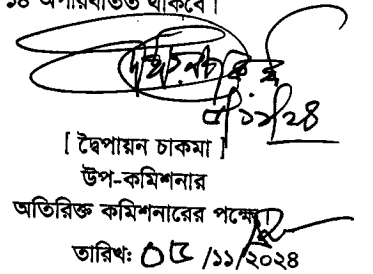 ১৪ অপরিবর্তিত থাকবে।
৫/১১/২৪
[ দ্বৈপায়ন চাকমা ]
উপ-কমিশনার
অতিরিক্ত কমিশনারের পক্ষে।
তারিখঃ ০৫ /১১/২০২৪